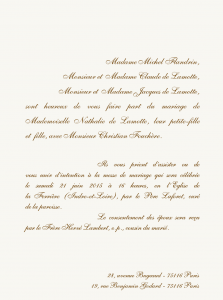 Madame Michel Flandrin,
Monsieur et Madame Claude de Lamotte,
Monsieur et Madame Jacques de Lamotte,
sont heureux de vous faire part du mariage de
Mademoiselle Nathalie de Lamotte, leur petite-fille
et fille, avec Monsieur Christian Fouchère.
Ils vous prient d'assister ou de
vous unir d'intention à la messe de mariage qui sera célébrée
le samedi 21 juin 2015 à 16 heures, en l'Église de
la Ferrière (Indre-et-Loire), par le Père Lafont, curé
de la paroisse.
Le consentement des époux sera reçu
par le Frère Hervé Lambert, o.p., cousin du marié.
28, avenue Bugeaud - 75116 Paris
19, rue Benjamin Godard - 75116 Paris